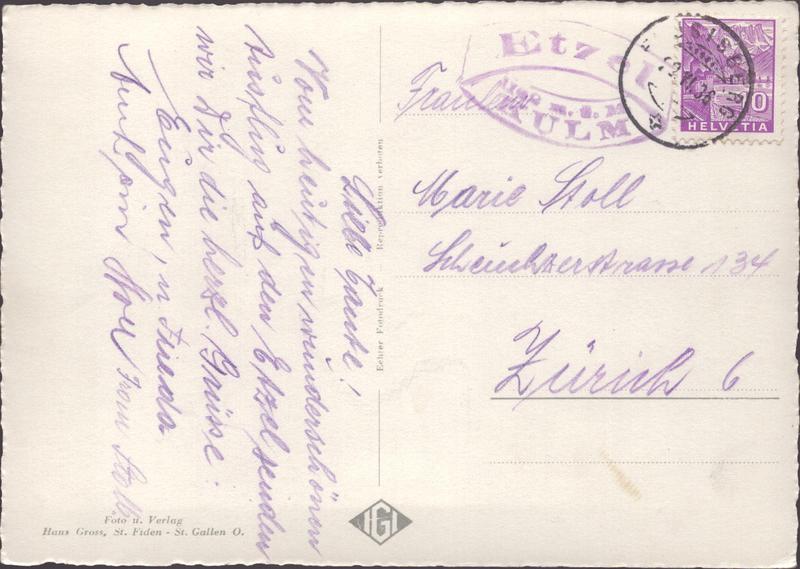 Liebe Tante!
Vom heutigen wunderschönen
Ausflug auf den Etzel senden
wir Dir die herzl. Grüsse:
Eugen, u Frieda
Stoll Frau Stoll
Echter Fotodruck — Reproduktion verboten
Foto u. Verlag
Hans Gross, St. Fiden - St. Gallen O.
IGI
Etzel
KULM
HELVETIA
Fräulein
Marie Stoll
Scheuchzerstrasse 134
Zürich 6